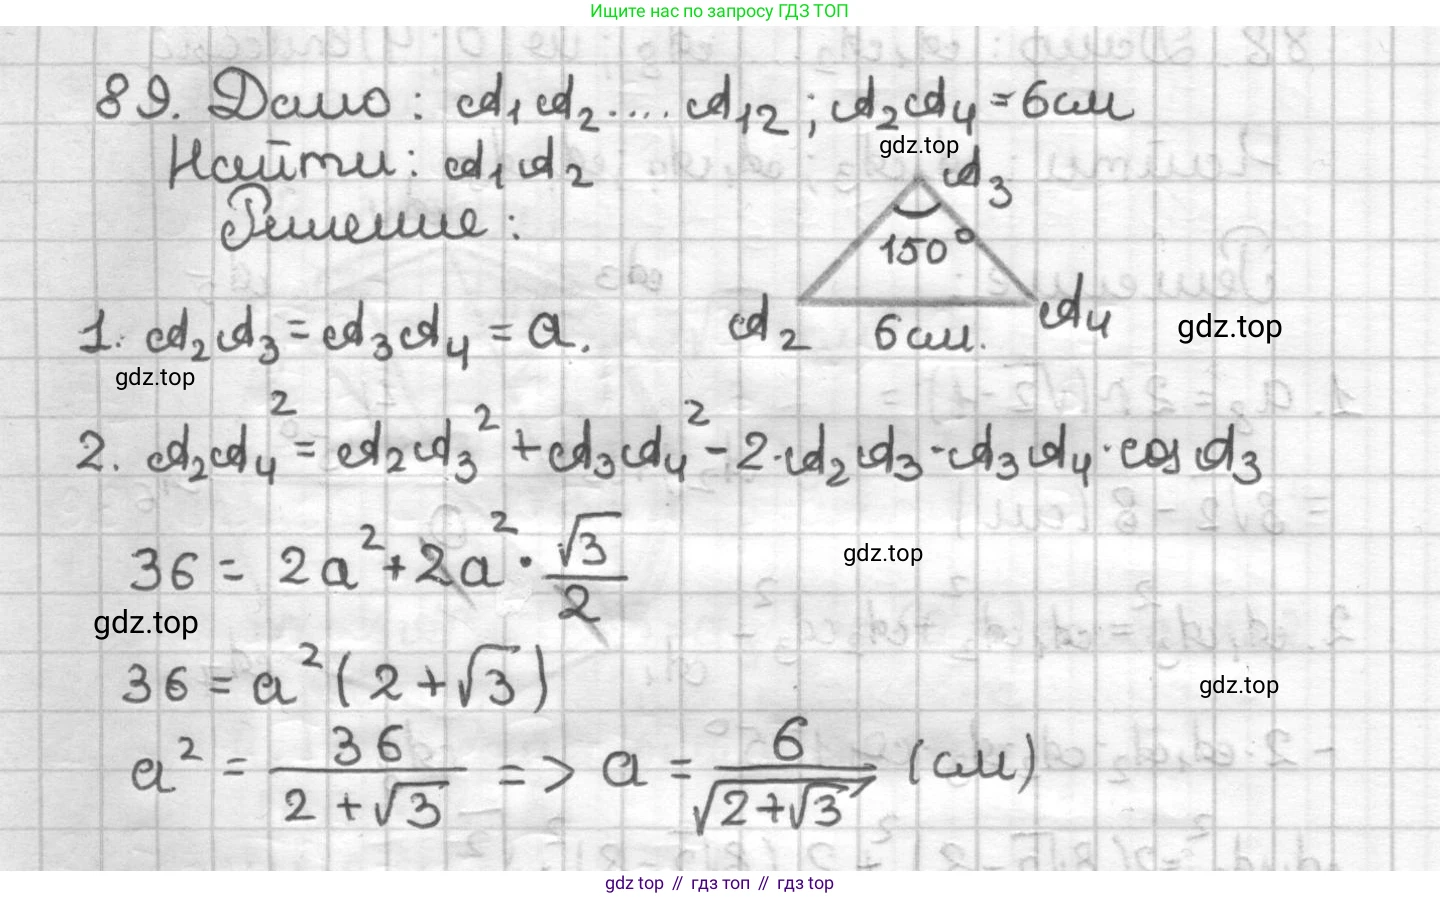 Ищите нас по запросу ГДЗ ТОП
89. Дано: A₁A₂....A₁₂; A₂A₄ = 6см
gdz.top
Найти: A₁A₂
A₃
Решение:
150°
1. A₂A₃ = A₃A₄ = a.
A₂ 6см. A₄
gdz.top
gdz.top
2. A₂A₄² = A₂A₃² + A₃A₄² - 2·A₂A₃·A₃A₄·cos A₃
36 = 2a² + 2a² · √3/2
gdz.top
gdz.top
36 = a²(2+√3)
gdz.top
a² = 36/(2+√3) => a = 6/√(2+√3) (см)
gdz top // гдз топ // gdz top